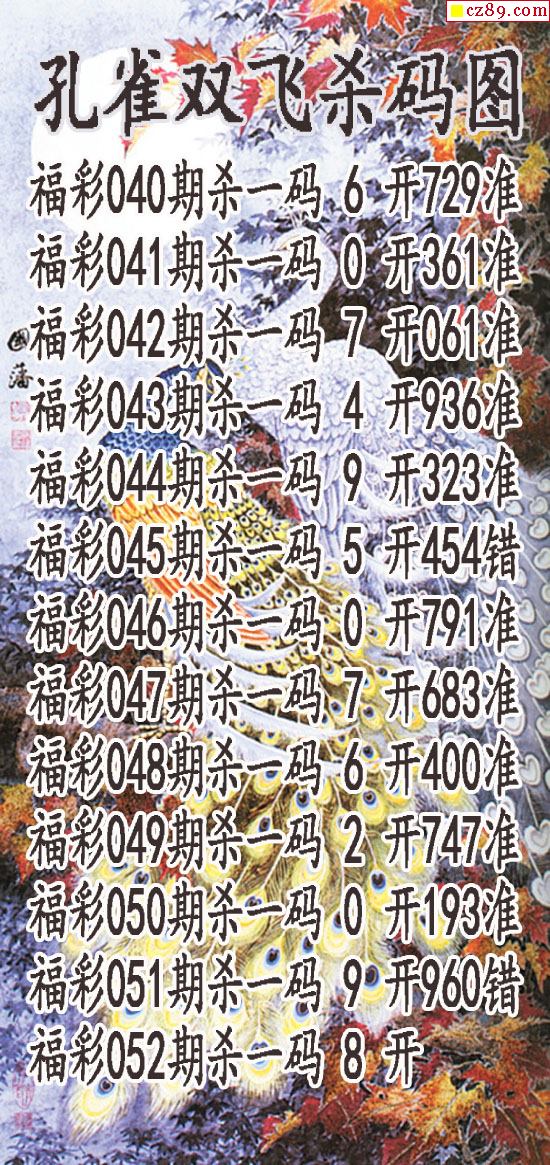 cz89.com
孔雀双飞杀码图
福彩040期杀一码 6 开729准
福彩041期杀一码 0 开361准
福彩042期杀一码 7 开061准
福彩043期杀一码 4 开936准
福彩044期杀一码 9 开323准
福彩045期杀一码 5 开454错
福彩046期杀一码 0 开791准
福彩047期杀一码 7 开683准
福彩048期杀一码 6 开400准
福彩049期杀一码 2 开747准
福彩050期杀一码 0 开193准
福彩051期杀一码 9 开960错
福彩052期杀一码 8 开